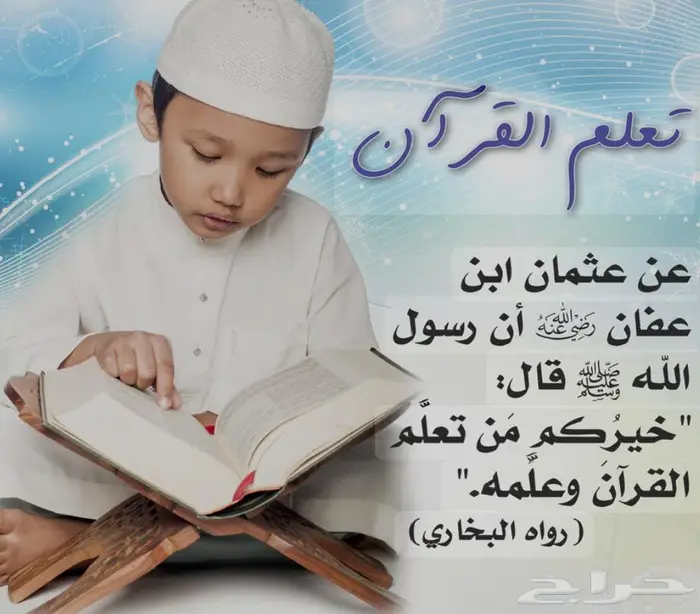 تعلم القرآن
عن عثمان ابن
عفان رضي الله عنه أن رسول
الله ﷺ قال:
"خيرُكم مَن تعلَّم
القرآنَ وعلَّمه."
(رواه البخاري)
حراج